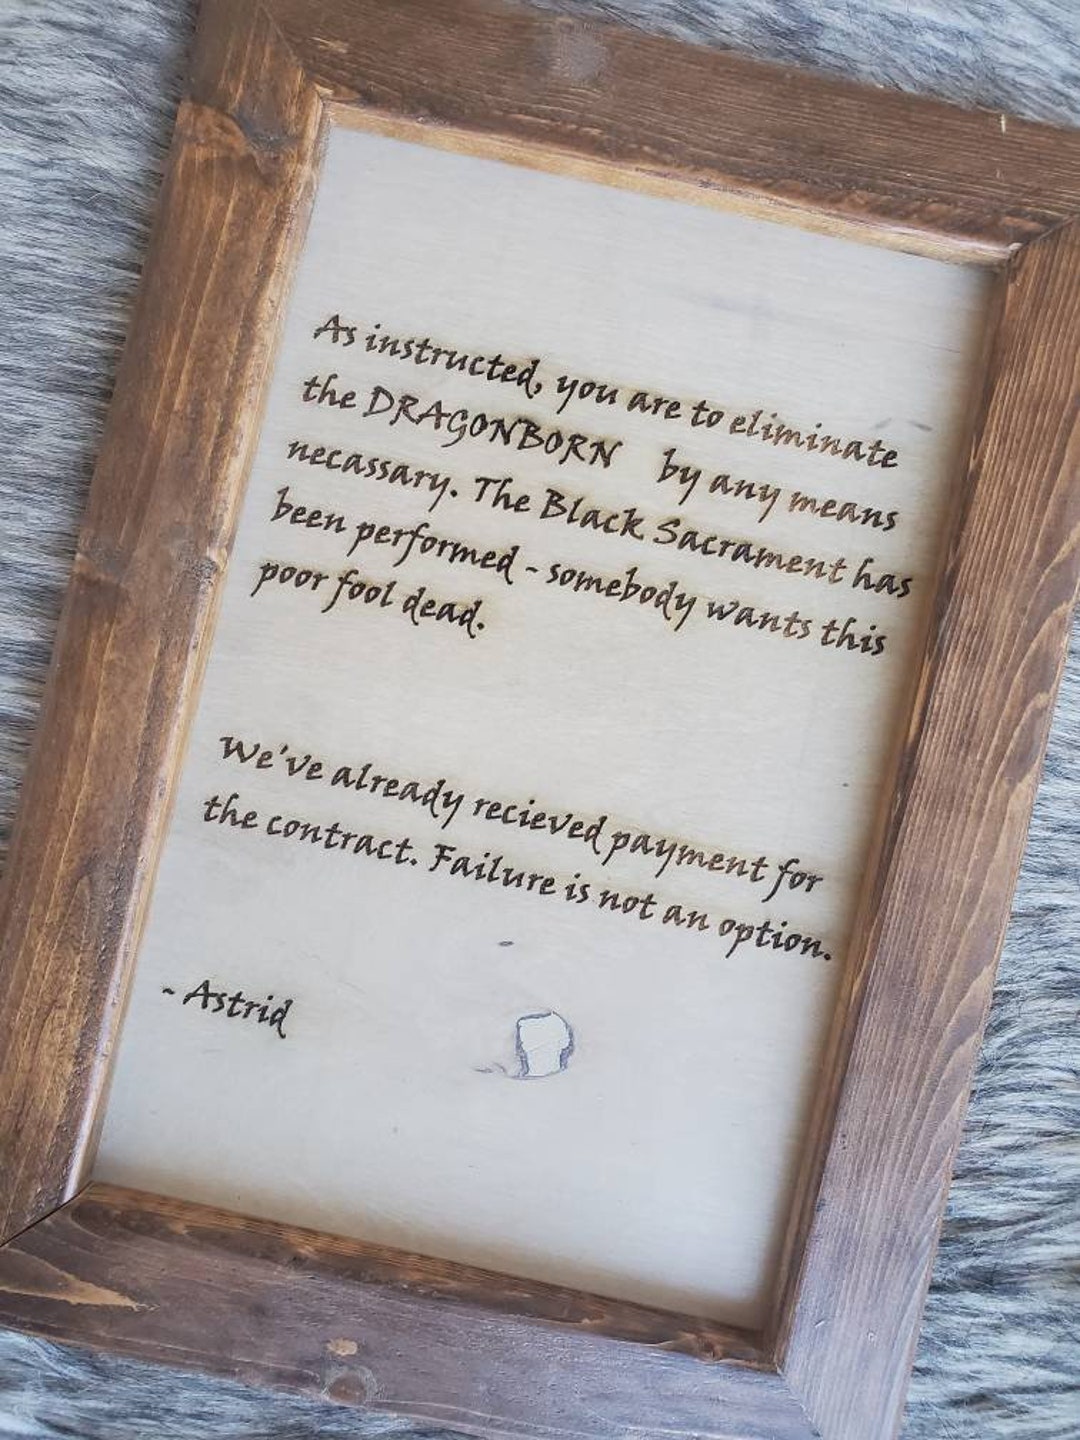 As instructed, you are to eliminate
the DRAGONBORN by any means
necassary. The Black Sacrament has
been performed - somebody wants this
poor fool dead.
We've already recieved payment for
the contract. Failure is not an option.
- Astrid